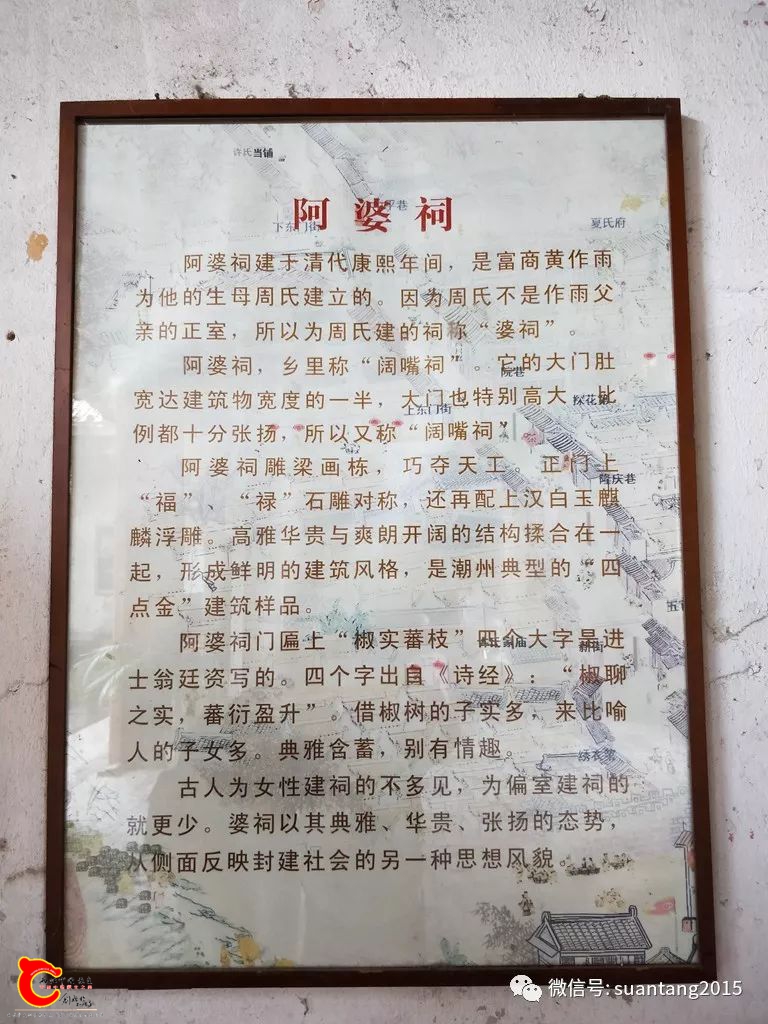 许氏当铺
阿婆祠
下东门街
夏氏府
阿婆祠建于清代康熙年间，是富商黄作雨
为他的生母周氏建立的。因为周氏不是作雨父
亲的正室，所以为周氏建的祠称“婆祠”。
阿婆祠，乡里称“阔嘴祠”。它的大门肚
宽达建筑物宽度的一半，大门也特别高大，比
例都十分张扬，所以又称“阔嘴祠”
上东门街
阿婆祠雕梁画栋，巧夺天工。正门上
隆庆巷
“福”、“禄”石雕对称，还再配上汉白玉麒
麟浮雕。高雅华贵与爽朗开阔的结构揉合在一
起，形成鲜明的建筑风格，是潮州典型的“四
点金”建筑样品。
阿婆祠门匾上“椒实蕃枝”四个大字是进
士翁廷资写的。四个字出自《诗经》：“椒聊
之实，蕃衍盈升”。借椒树的子实多，来比喻
人的子女多。典雅含蓄，别有情趣。
古人为女性建祠的不多见，为偏室建祠的
就更少。婆祠以其典雅、华贵、张扬的态势，
从侧面反映封建社会的另一种思想风貌。
微信号: suantang2015